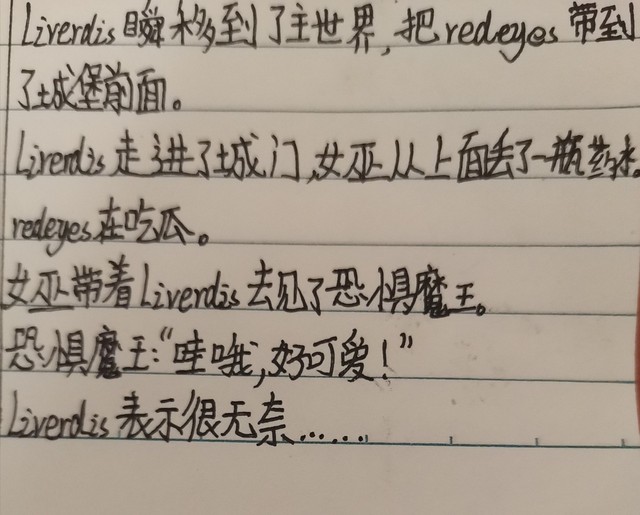 Liverdis瞬移到了主世界,把redeyes带到
了城堡前面。
Liverdis走进了城门,女巫从上面丢了一瓶药水。
redeyes在吃瓜。
女巫带着Liverdis去见了恐惧魔王。
恐惧魔王:“哇哦,好可爱!”
Liverdis表示很无奈......